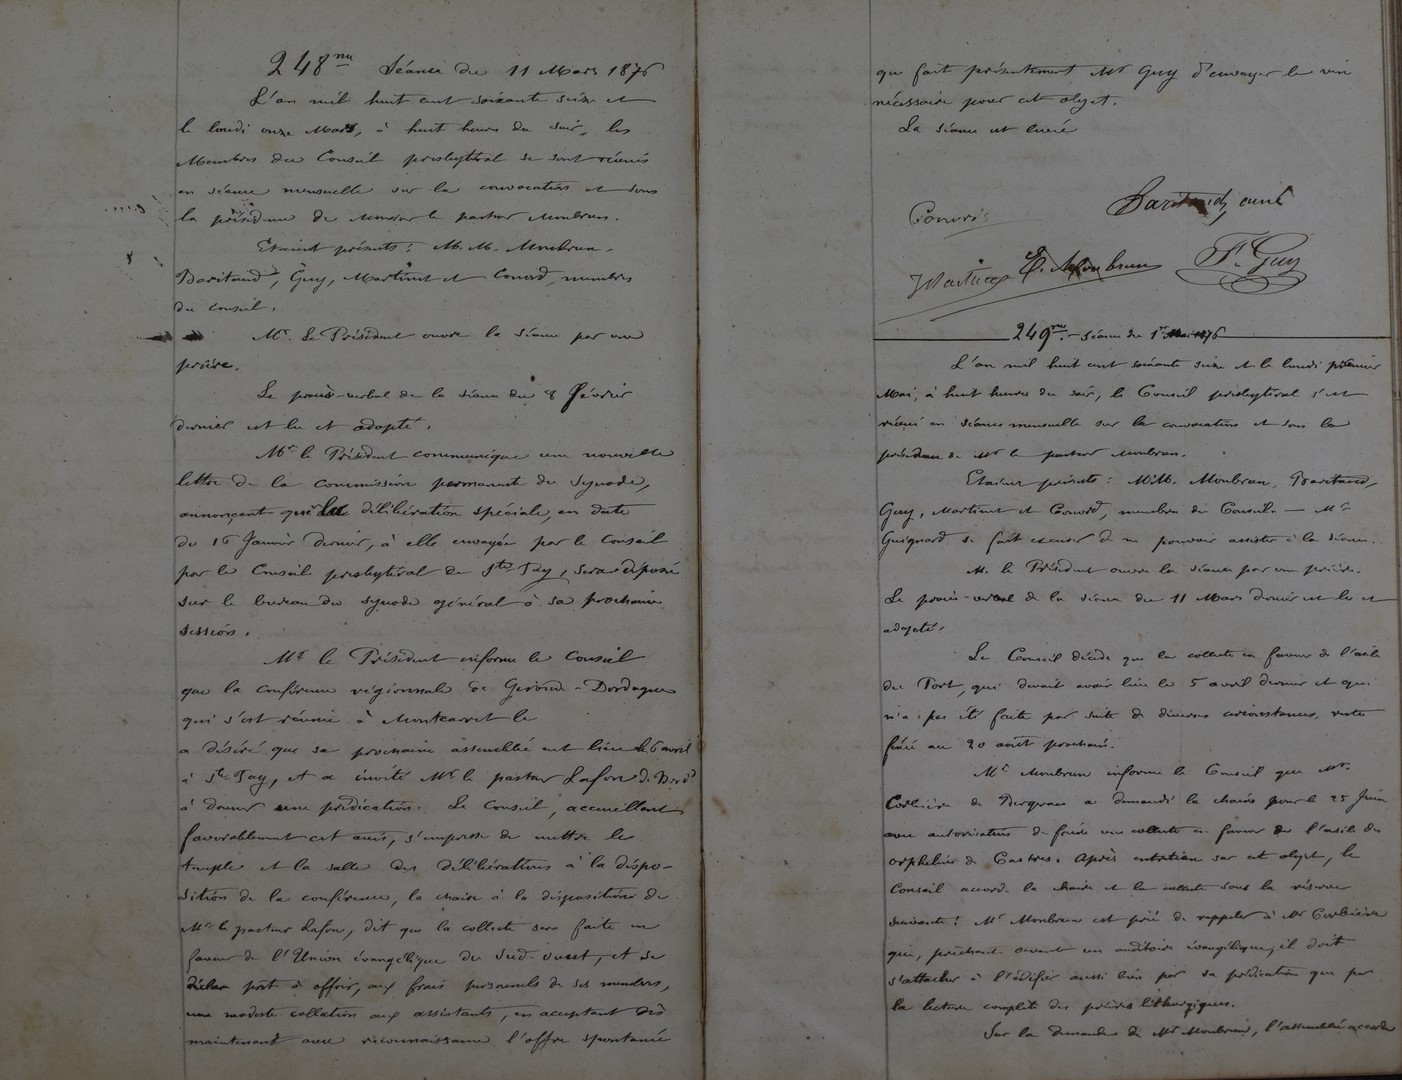 248me Séance du 11 Mars 1876
L'an mil huit cent soixante seize et
le lundi onze Mars, à huit heures du soir, les
Membres du Conseil presbytéral se sont réunis
en séance mensuelle sur la convocation et sous
la présidence de Monsieur le pasteur Monbrun.
Etaient présents : M. M. Monbrun,
Baritaud, Guy, Martinet et Conord, membres
du conseil.
Mr. Le Président ouvre la séance par une
prière.
Le procès-verbal de la séance du 8 Février
dernier est lu et adopté.
Mr le Président communique une nouvelle
lettre de la commission permanente du Synode,
annonçant que la délibération spéciale, en date
du 16 Janvier dernier, à elle envoyée par le Conseil
par le Conseil presbytéral de Ste-Foy, sera déposée
sur le bureau du synode général à sa prochaine
session.
Mr le Président informe le Conseil
que la conférence régionnale de Gironde-Dordogne
qui s'est réunie à Montcarret le
a désiré que sa prochaine assemblée eut lieu le 6 avril
à Ste-Foy, et a invité Mr le pasteur Lafon de
à donner une prédication. Le Conseil, accueillant
favorablement cet avis, s'empresse de mettre le
temple et la salle des délibérations à la dispo-
sition de la conférence, la chaire à la disposition de
Mr le pasteur Lafon, dit que la collecte sera faite en
faveur de l'Union évangélique du Sud-ouest, et se
déclare prêt à offrir, aux frais personnels de ses membres,
une modeste collation aux assistants, en acceptant dès
maintenant avec reconnaissance l'offre spontanée
que fait présentement Mr Guy d'envoyer le vin
nécessaire pour cet objet.
La séance est levée
Baritaud, ainé
Conord
Martinet E. Monbrun F. Guy
249me. - Séance du 1er Mai 1876
L'an mil huit cent soixante seize et le lundi premier
Mai, à huit heures du soir, le Conseil presbytéral s'est
réuni en séance mensuelle sur la convocation et sous la
présidence de Mr le pasteur Monbrun.
Etaient présents : MM. Monbrun, Baritaud,
Guy, Martinet et Conord, membres du Conseil. — Mr
Guignard se fait excuser de ne pouvoir assister à la séance.
M. le Président ouvre la séance par une prière.
Le procès-verbal de la séance du 11 Mars dernier est lu et
adopté.
Le Conseil décide que la collecte en faveur de l'asile
du Port, qui devait avoir lieu le 5 avril dernier et qui
n'a pas été faite par suite de diverses circonstances, reste
fixée au 20 août prochain.
Mr Monbrun informe le Conseil que Mr.
Corbière de Bergerac a demandé la chaire pour le 25 Juin
avec autorisation de faire une collecte en faveur de l'asile des
orphelins de Castres. Après entretien sur cet objet, le
Conseil accorde la chaire et la collecte sous la réserve
suivante : Mr Monbrun est prié de rappeler à Mr Corbière
que, prêchant devant un auditoire évangélique, il doit
s'attacher à l'édifier aussi bien par sa prédication que par
la lecture complète des prières lithurgiques.
Sur la demande de Mr Monbrun, l'assemblée accorde